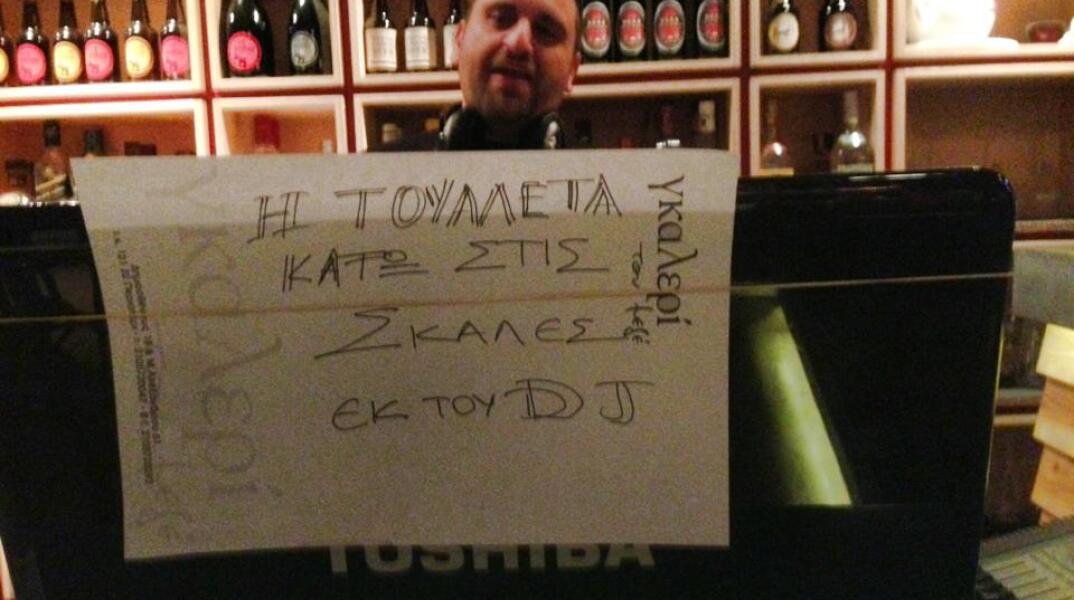 Η ΤΟΥΑΛΕΤΑ
ΚΑΤΩ ΣΤΙΣ
ΣΚΑΛΕΣ
ΕΚ ΤΟΥ DJ
γκαλερί
του μεζέ
γκαλερί
TOSHIBA